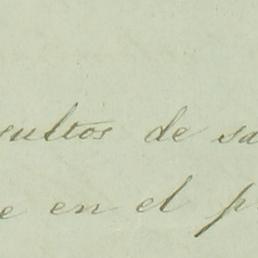 sultos de sa
e en el p